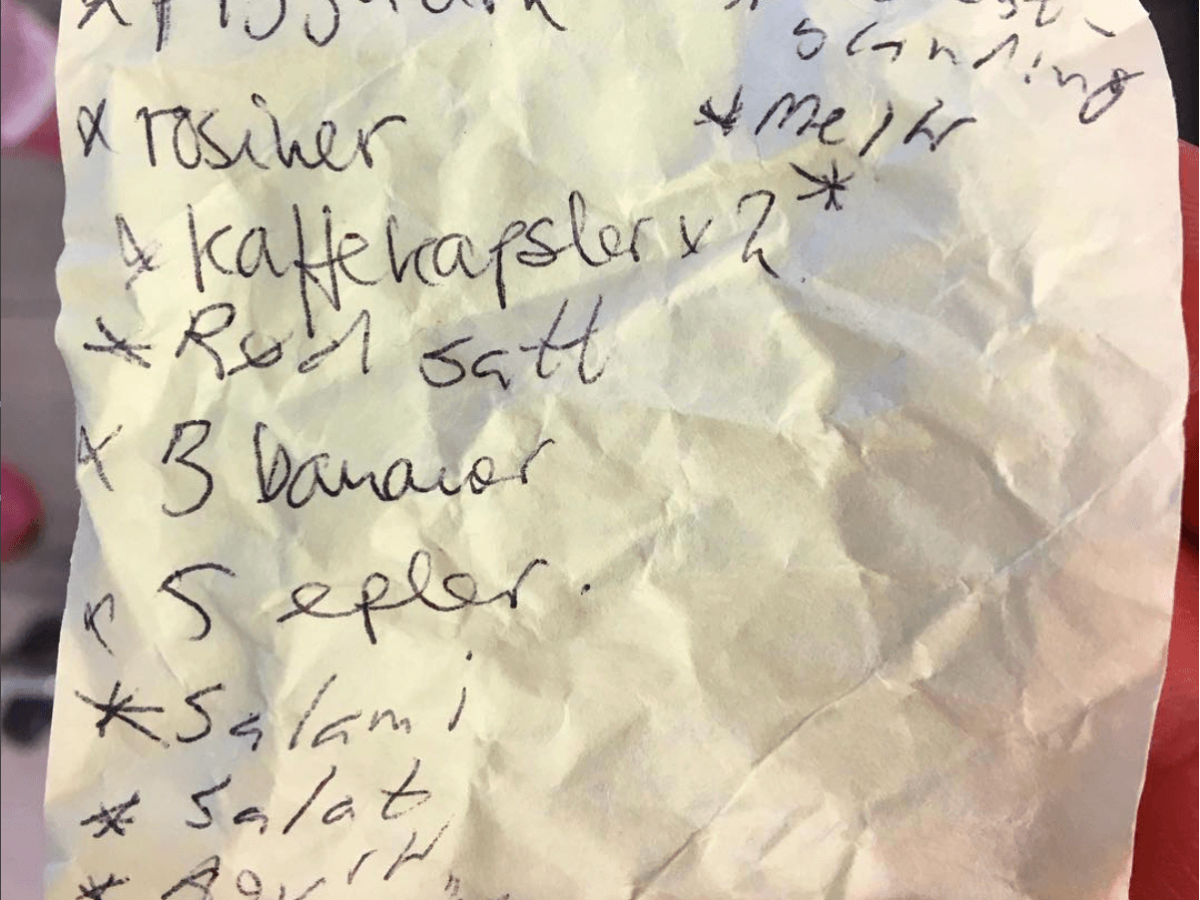 blanding
x rosiner
* Melk
x kaffekapsler x 2
*
* Rød saft
x 3 bananer
x 5 epler.
* Salami
* Salat
* Agurk